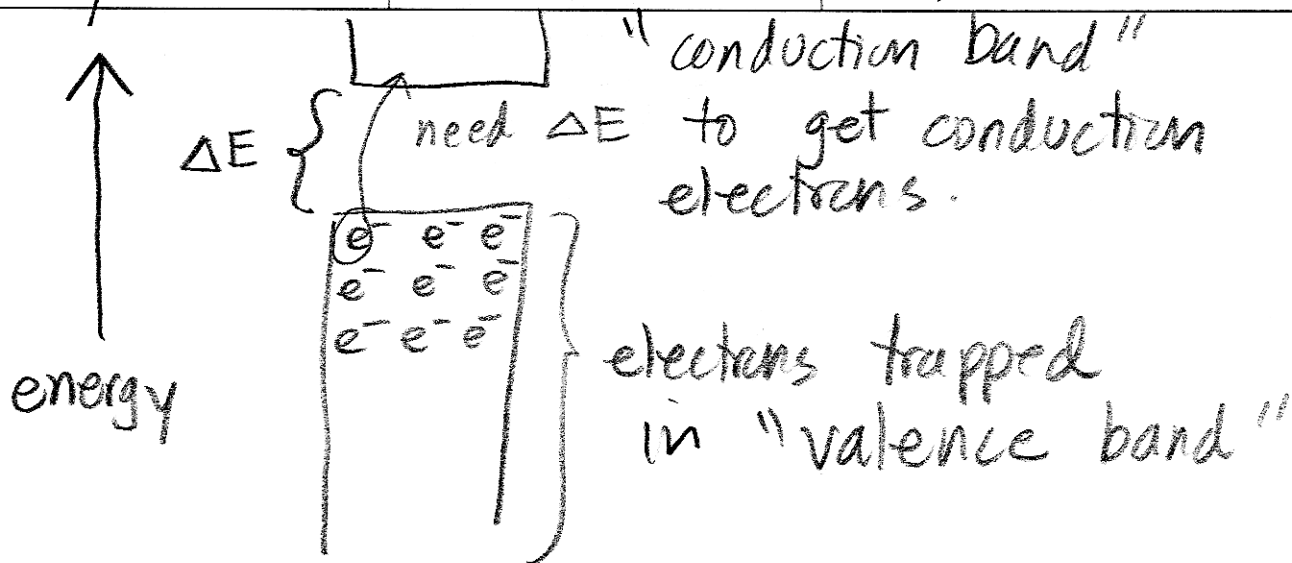 "conduction band"
ΔE { need ΔE to get conduction
electrons.
e⁻ e⁻ e⁻
e⁻ e⁻ e⁻
e⁻ e⁻ e⁻
electrons trapped
energy
in "valence band"